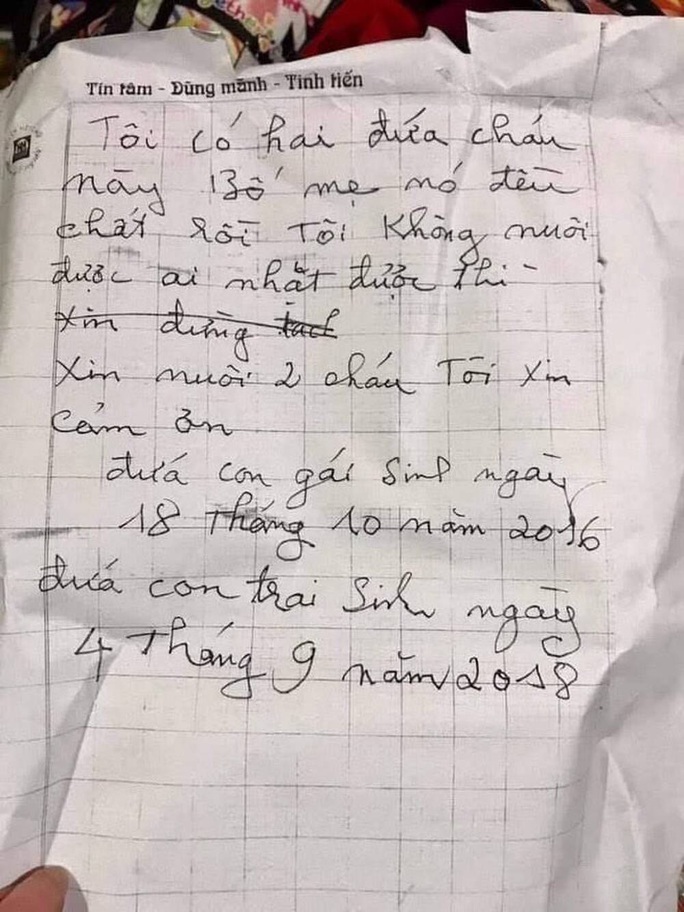 Tín tâm - Dũng mãnh - Tinh tiến
Tôi có hai đứa cháu
này Bố mẹ nó đều
chất rồi Tôi Không nuôi
được ai nhặt được thì
xin đừng tach
xin nuôi 2 cháu Tôi xin
cảm ơn
đứá con gái sinh ngày
18 Tháng 10 năm 2016
đứá con trai sinh ngày
4 Tháng 9 năm 2018